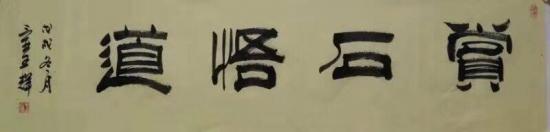 賞石悟道
戊戌冬月